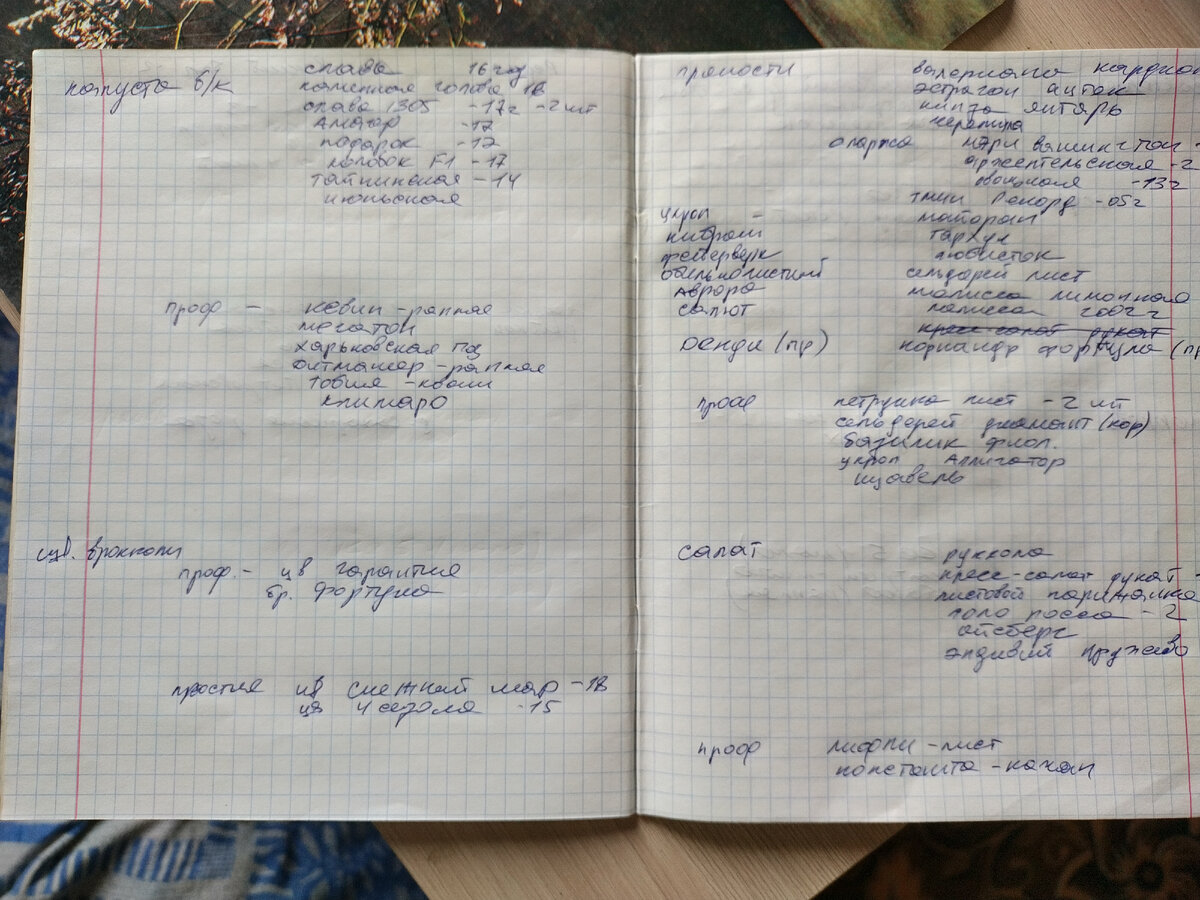 капуста б/к
слава 16 год
каменная голова 18
слава 1305 -17г -2 шт
Амагер -17
подарок -17
колобок F1 -17
тайнинская -14
июньская
проф - кевин -ранняя
мегатон
харьковская пз
дитмашер -ранняя
товия -кваш
килмаро
цв. брокколи
проф. - цв гарантия
бр. Фортуна
простые цв снежный шар -18
цв 4 сезона -15
пряности
валериана кардио
эстрагон ацтек
кинза янтарь
черемша
спаржа мэри вашингтон -
аржентельская -2
овощная -13г
тмин Рекорд -05г
майоран
тархун
любисток
сельдерей лист
мелисса лимонная
мелисса 2002 г
кресс-салат дукат
кориандр формула (пр
укроп -
кибрай
фейерверк
обильнолистный
Аврора
салют
Сенди (пр)
проф петрушка лист -2 шт
сельдерей диамант (кор)
базилик фиол.
укроп Аллигатор
щавель
салат
руккола
кресс-салат дукат -
листовой парижанка
лоло росса -2
айсберг
эндивий кружево
проф лифли -лист
константа -кочан